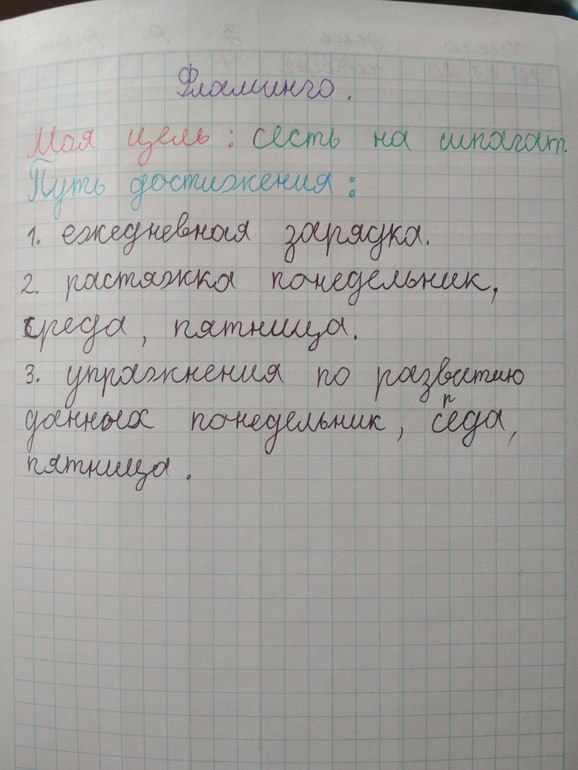 Фламинго.
Моя цель: сесть на шпагат.
Путь достижения:
1. ежедневная зарядка.
2. растяжка понедельник,
среда, пятница.
3. упражнения по развитию
данных понедельник, среда,
пятница.